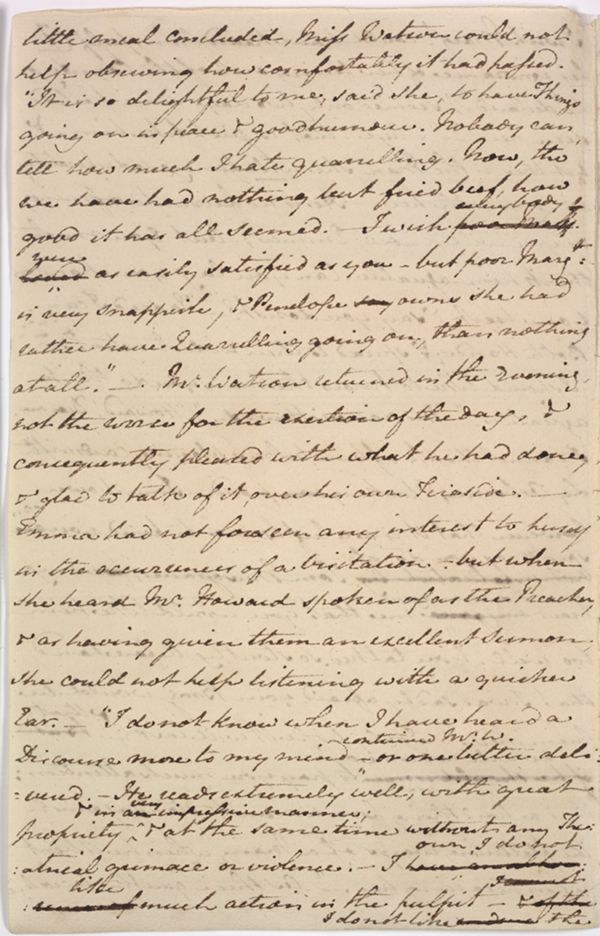 little meal concluded, Miss Watson could not
help observing how comfortably it had passed.
"It is so delightful to me, said she, to have Things
going on in peace & goodhumour. Nobody can
tell how much I hate quarrelling. Now, tho'
we have had nothing but fried beef, how
good it has all seemed. — I wish everybody
were as easily satisfied as you – but poor Marg.t
is very snappish, & Penelope owns she had
rather have Quarrelling going on, than nothing
at all." — . Mr. Watson returned in the Evening,
not the worse for the exertion of the day, &
consequently pleased with what he had done,
& glad to talk of it, over his own Fireside. —
Emma had not foreseen any interest to herself
in the occurrences of a Visitation – but when
she heard Mr. Howard spoken of as the Preacher,
& as having given them an excellent Sermon,
she could not help listening with a quicker
Ear. — "I do not know when I have heard a
Discourse more to my mind – continued Mr. W.
or one better deli
:vered. – He reads extremely well, with great
propriety & in a very impressive manner;
& at the same time without any The
:atrical grimace or violence. – I own, I do not
like much action in the pulpit –
I do not like the